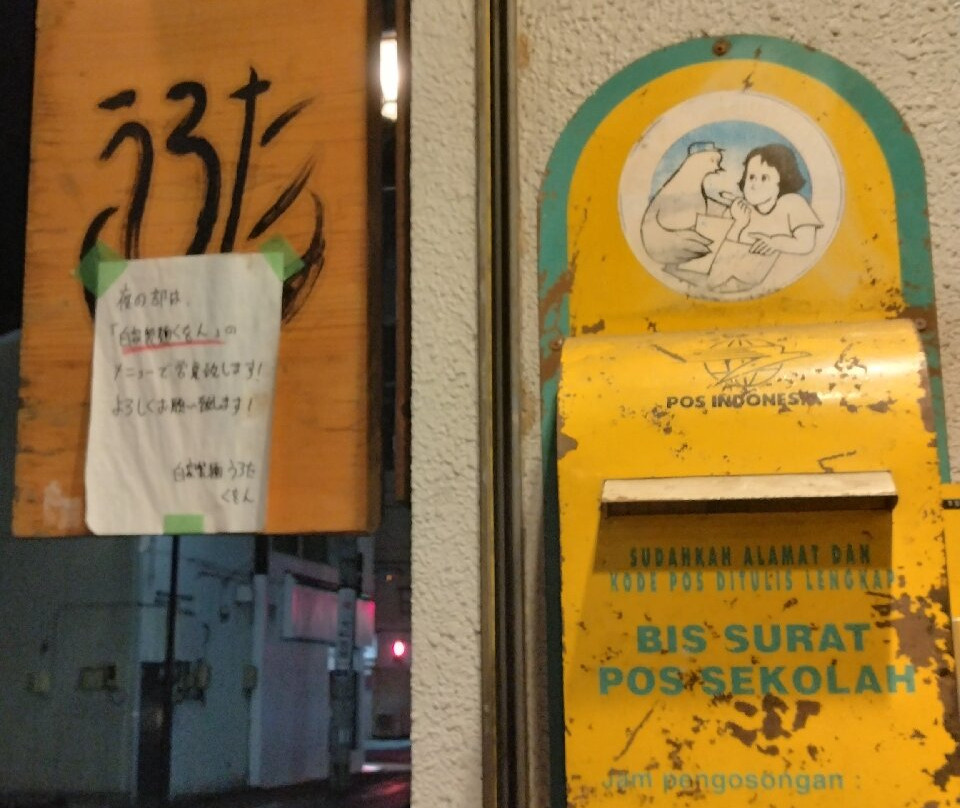 うろた
夜の部は、
「自家製麺くおん」の
メニューで営業致します!
よろしくお願い致します!
自家製麺 うろた
くおん
POS INDONESIA
SUDAHKAH ALAMAT DAN
KODE POS DITULIS LENGKAP
BIS SURAT
POS SEKOLAH
Jam pengosongan :